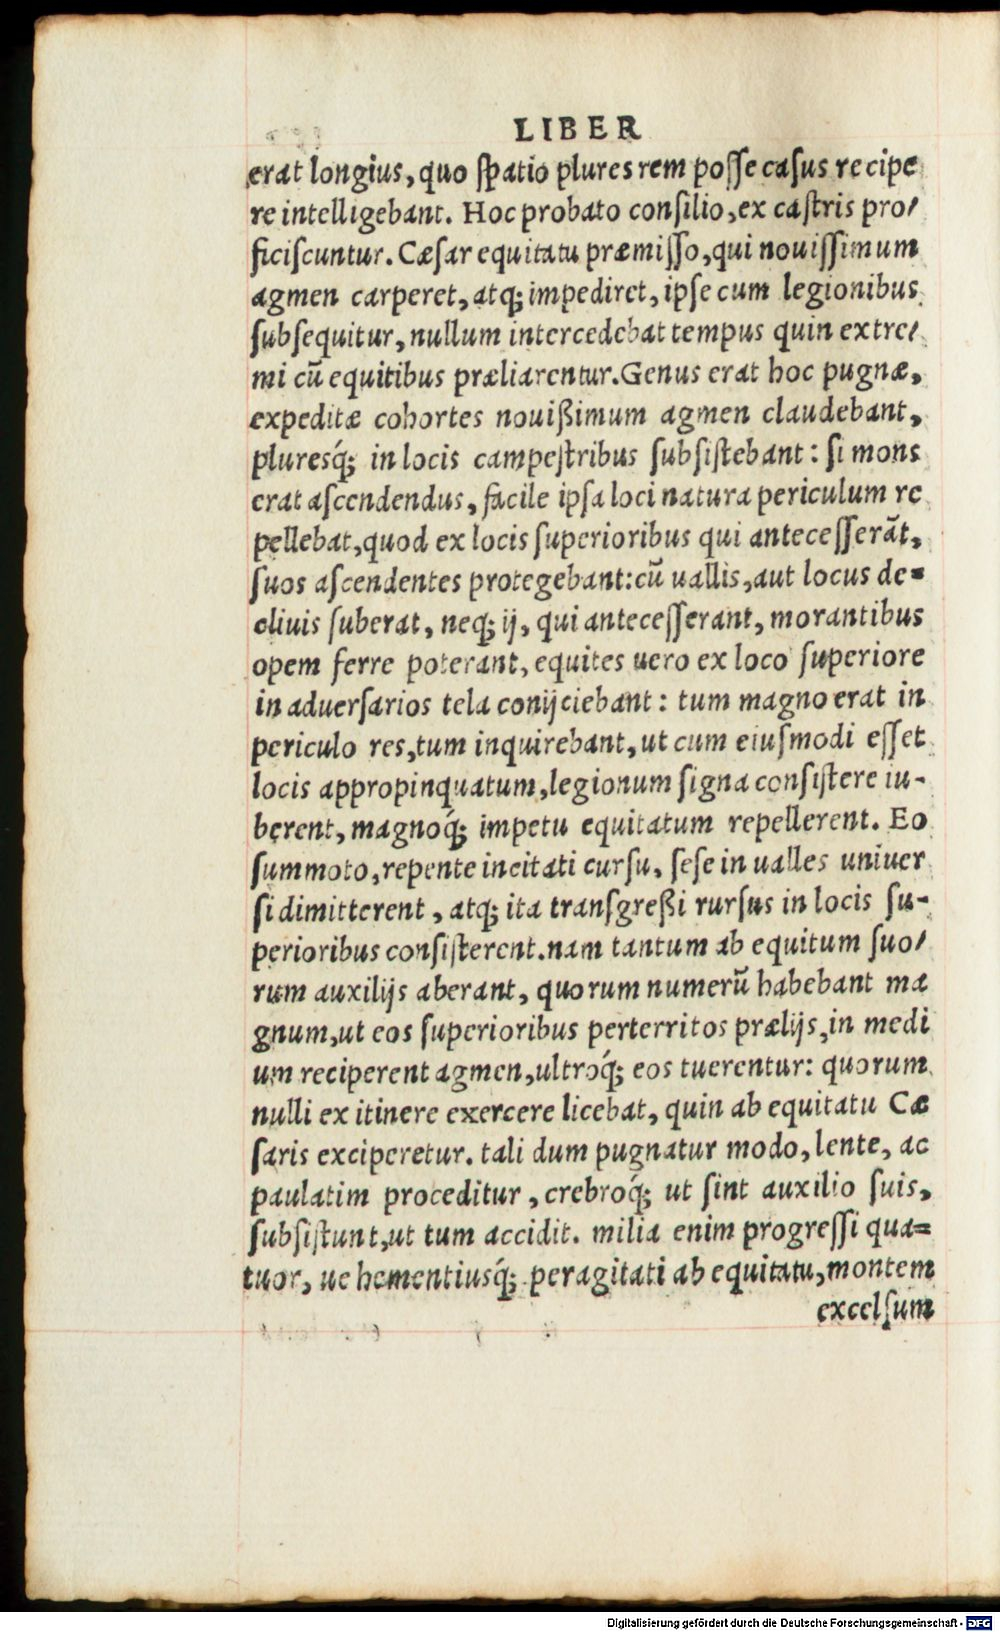 LIBER
erat longius, quo ſpatio plures rem poſſe caſus recipe
re intelligebant. Hoc probato conſilio, ex caſtris pro/
ficiſcuntur. Cæſar equitatu præmiſſo, qui nouiſſimum
agmen carperet, atq; impediret, ipſe cum legionibus
ſubſequitur, nullum intercedebat tempus quin extre/
mi cū equitibus præliarentur. Genus erat hoc pugnæ,
expeditæ cohortes nouißimum agmen claudebant,
pluresq́; in locis campeſtribus ſubſiſtebant: ſi mons
erat aſcendendus, facile ipſa loci natura periculum re
pellebat, quod ex locis ſuperioribus qui anteceſſerāt,
ſuos aſcendentes protegebant: cū uallis, aut locus de=
cliuis ſuberat, neq; ij, qui anteceſſerant, morantibus
opem ferre poterant, equites uero ex loco ſuperiore
in aduerſarios tela conijciebant: tum magno erat in
periculo res, tum inquirebant, ut cum eiuſmodi eſſet
locis appropinquatum, legionum ſigna conſiſtere iu-
berent, magnoq́; impetu equitatum repellerent. Eo
ſummoto, repente incitati curſu, ſeſe in ualles uniuer
ſi dimitterent, atq; ita tranſgreßi rurſus in locis ſu-
perioribus conſiſterent. nam tantum ab equitum ſuo/
rum auxilijs aberant, quorum numerū habebant ma
gnum, ut eos ſuperioribus perterritos prælijs, in medi
um reciperent agmen, ultroq́; eos tuerentur: quorum
nulli ex itinere exercere licebat, quin ab equitatu Cæ
ſaris exciperetur. tali dum pugnatur modo, lente, ac
paulatim proceditur, crebroq́; ut ſint auxilio ſuis,
ſubſiſtunt, ut tum accidit. milia enim progreſſi qua=
tuor, uehementiusq́; peragitati ab equitatu, montem
excelſum
Digitalisierung gefördert durch die Deutsche Forschungsgemeinschaft - DFG